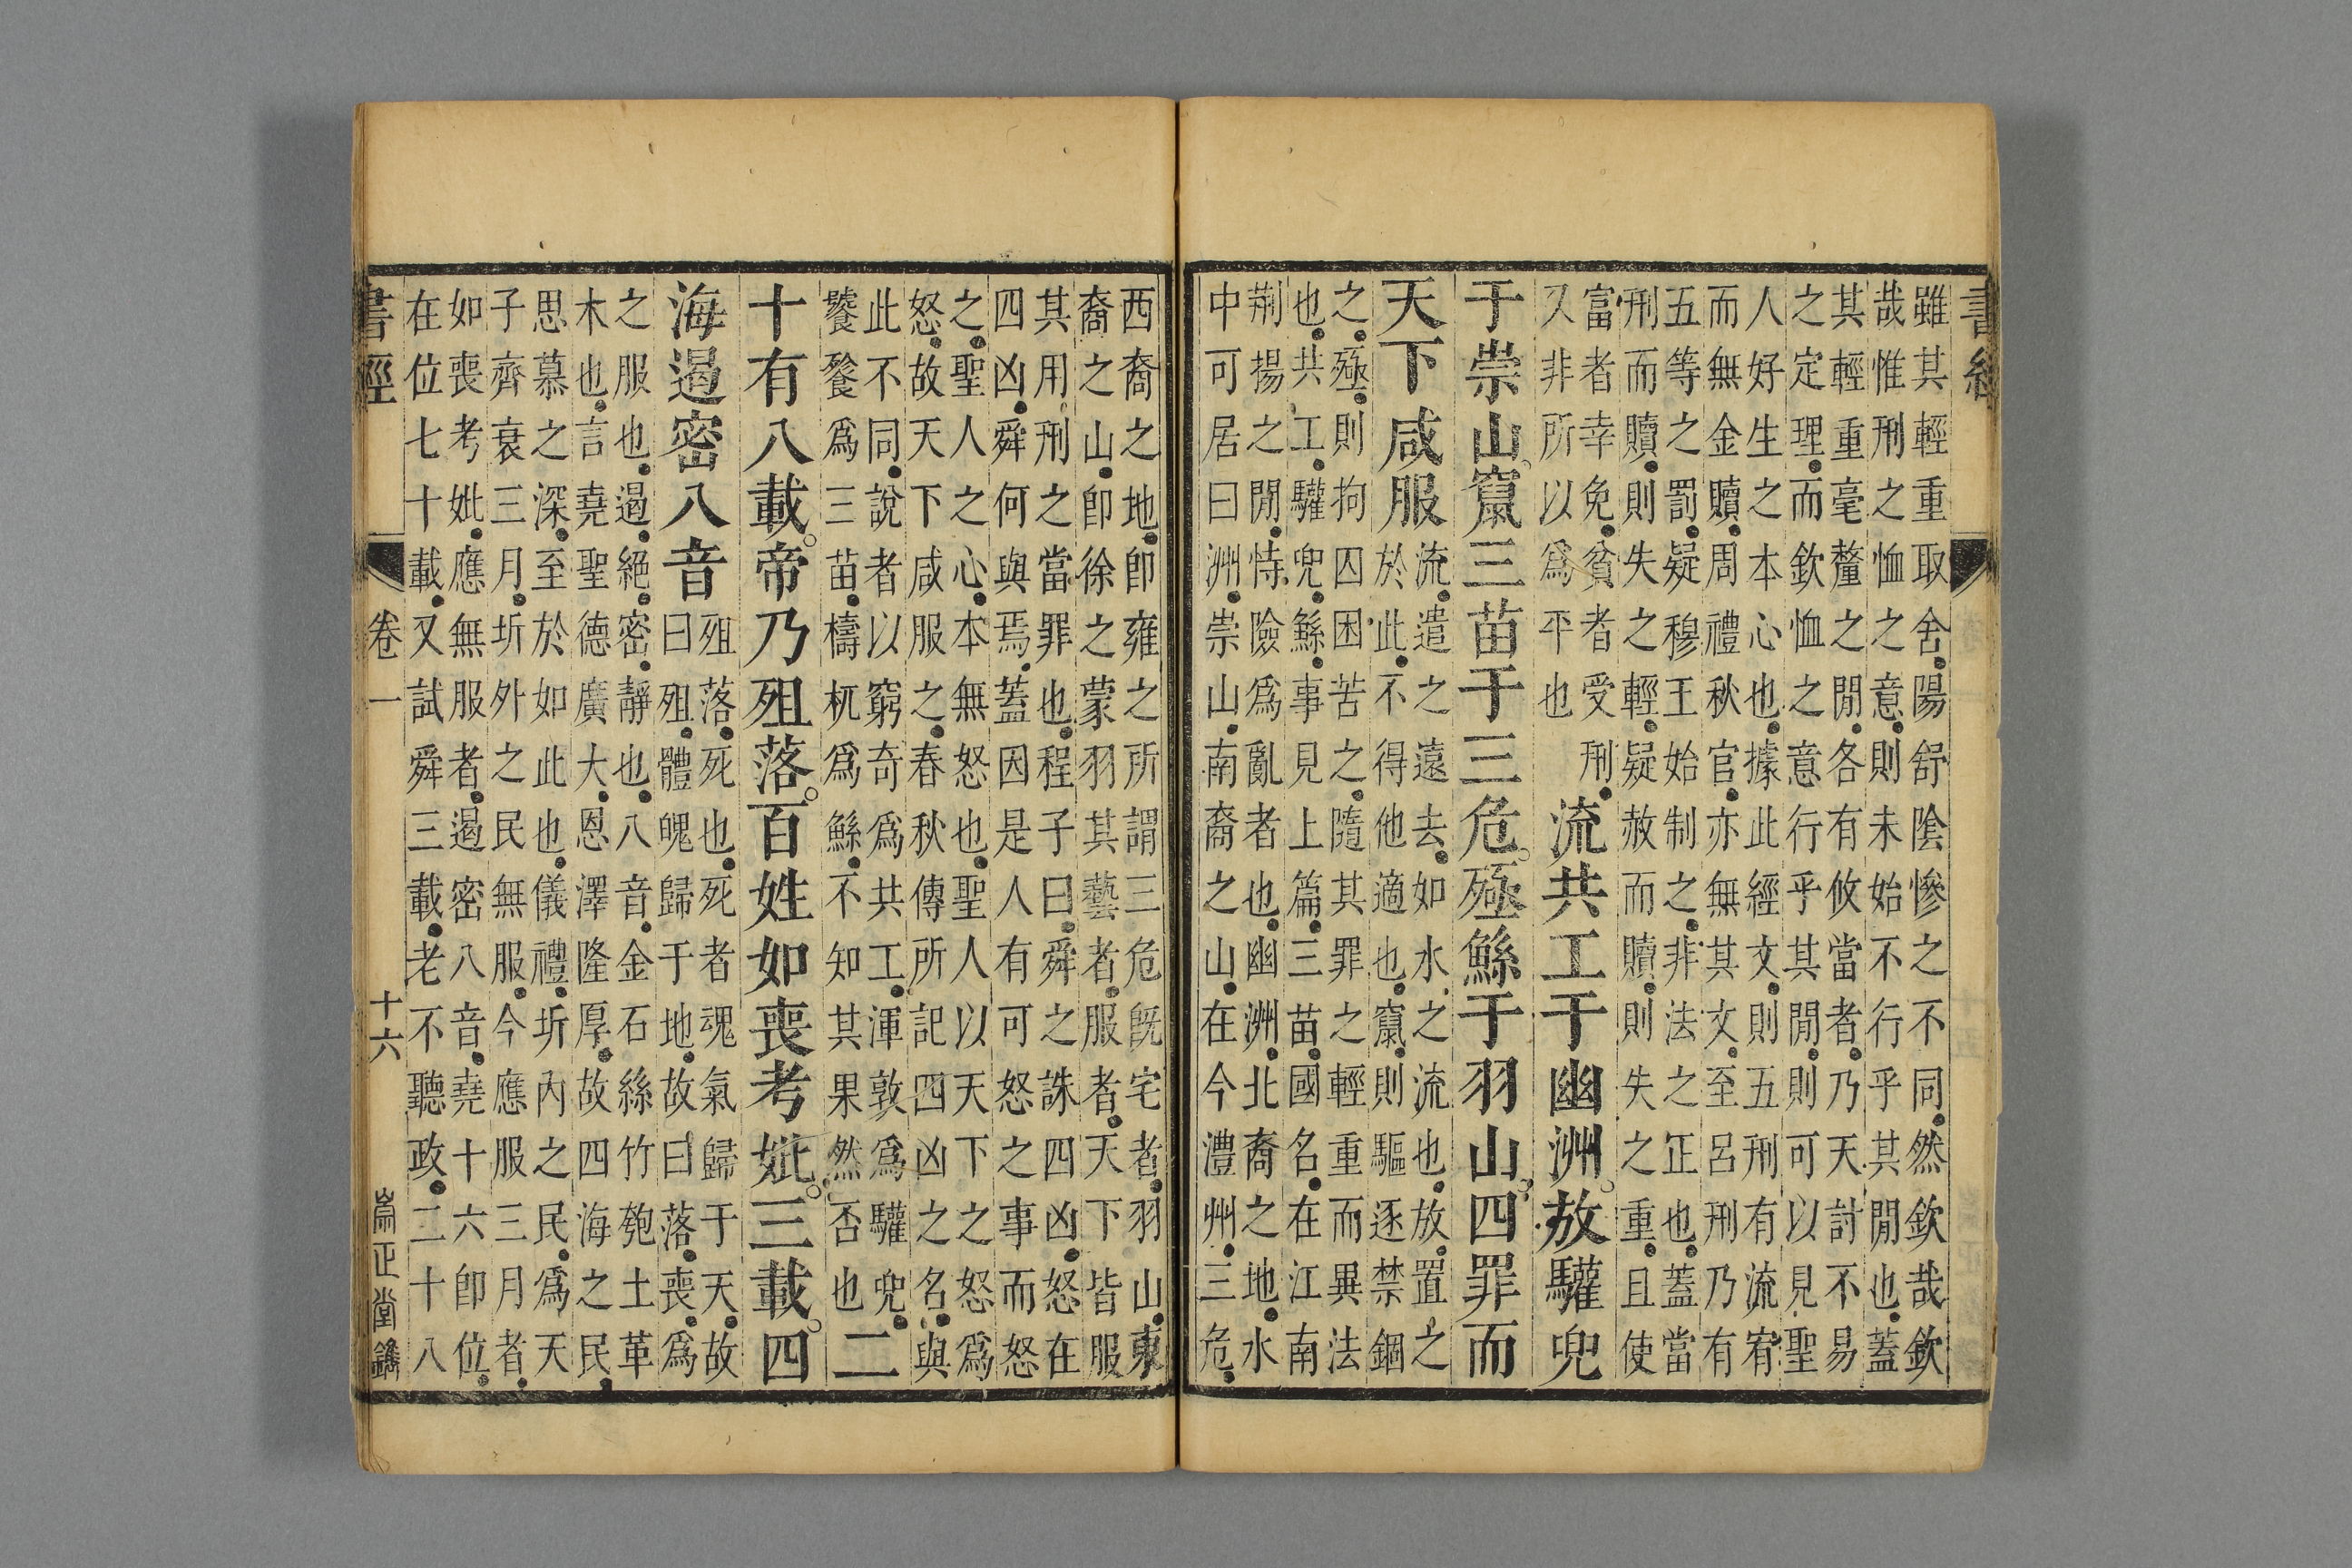 書經
雖其輕重取舍陽舒陰慘之不同然欽哉欽
哉惟刑之恤之意則未始不行乎其閒也蓋
其輕重毫釐之閒各有攸當者乃天討不易
之定理而欽恤之意行乎其閒則可以見聖
人好生之本心也據此經文則五刑有流宥
而無金贖周禮秋官亦無其文至呂刑乃有
五等之罰疑穆王始制之非法之正也蓋當
刑而贖則失之輕疑赦而贖則失之重且使
富者幸免貧者受刑
又非所以爲平也
流共工于幽洲放驩兜
于崇山竄三苗于三危殛鯀于羽山四罪而
天下咸服
流遣之遠去如水之流也放置之
於此不得他適也竄則驅逐禁錮
之殛則拘囚困苦之隨其罪之輕重而異法
也共工驩兜鯀事見上篇三苗國名在江南
荆揚之閒恃險爲亂者也幽洲北裔之地水
中可居曰洲崇山南裔之山在今澧州三危
西裔之地卽雍之所謂三危旣宅者羽山東
裔之山卽徐之蒙羽其藝者服者天下皆服
其用刑之當罪也程子曰舜之誅四凶怒在
四凶舜何與焉蓋因是人有可怒之事而怒
之聖人之心本無怒也聖人以天下之怒爲
怒故天下咸服之春秋傳所記四凶之名與
此不同說者以窮奇爲共工渾敦爲驩兜
饕餮爲三苗檮杌爲鯀不知其果然否也
二
十有八載帝乃殂落百姓如喪考妣三載四
海遏密八音
殂落死也死者魂氣歸于天故
曰殂體魄歸于地故曰落喪爲
之服也遏絕密靜也八音金石絲竹匏土革
木也言堯聖德廣大恩澤隆厚故四海之民
思慕之深至於如此也儀禮圻內之民爲天
子齊衰三月圻外之民無服今應服三月者
如喪考妣應無服者遏密八音堯十六卽位
在位七十載又試舜三載老不聽政二十八
書經 卷一 十六 崇正堂鐫